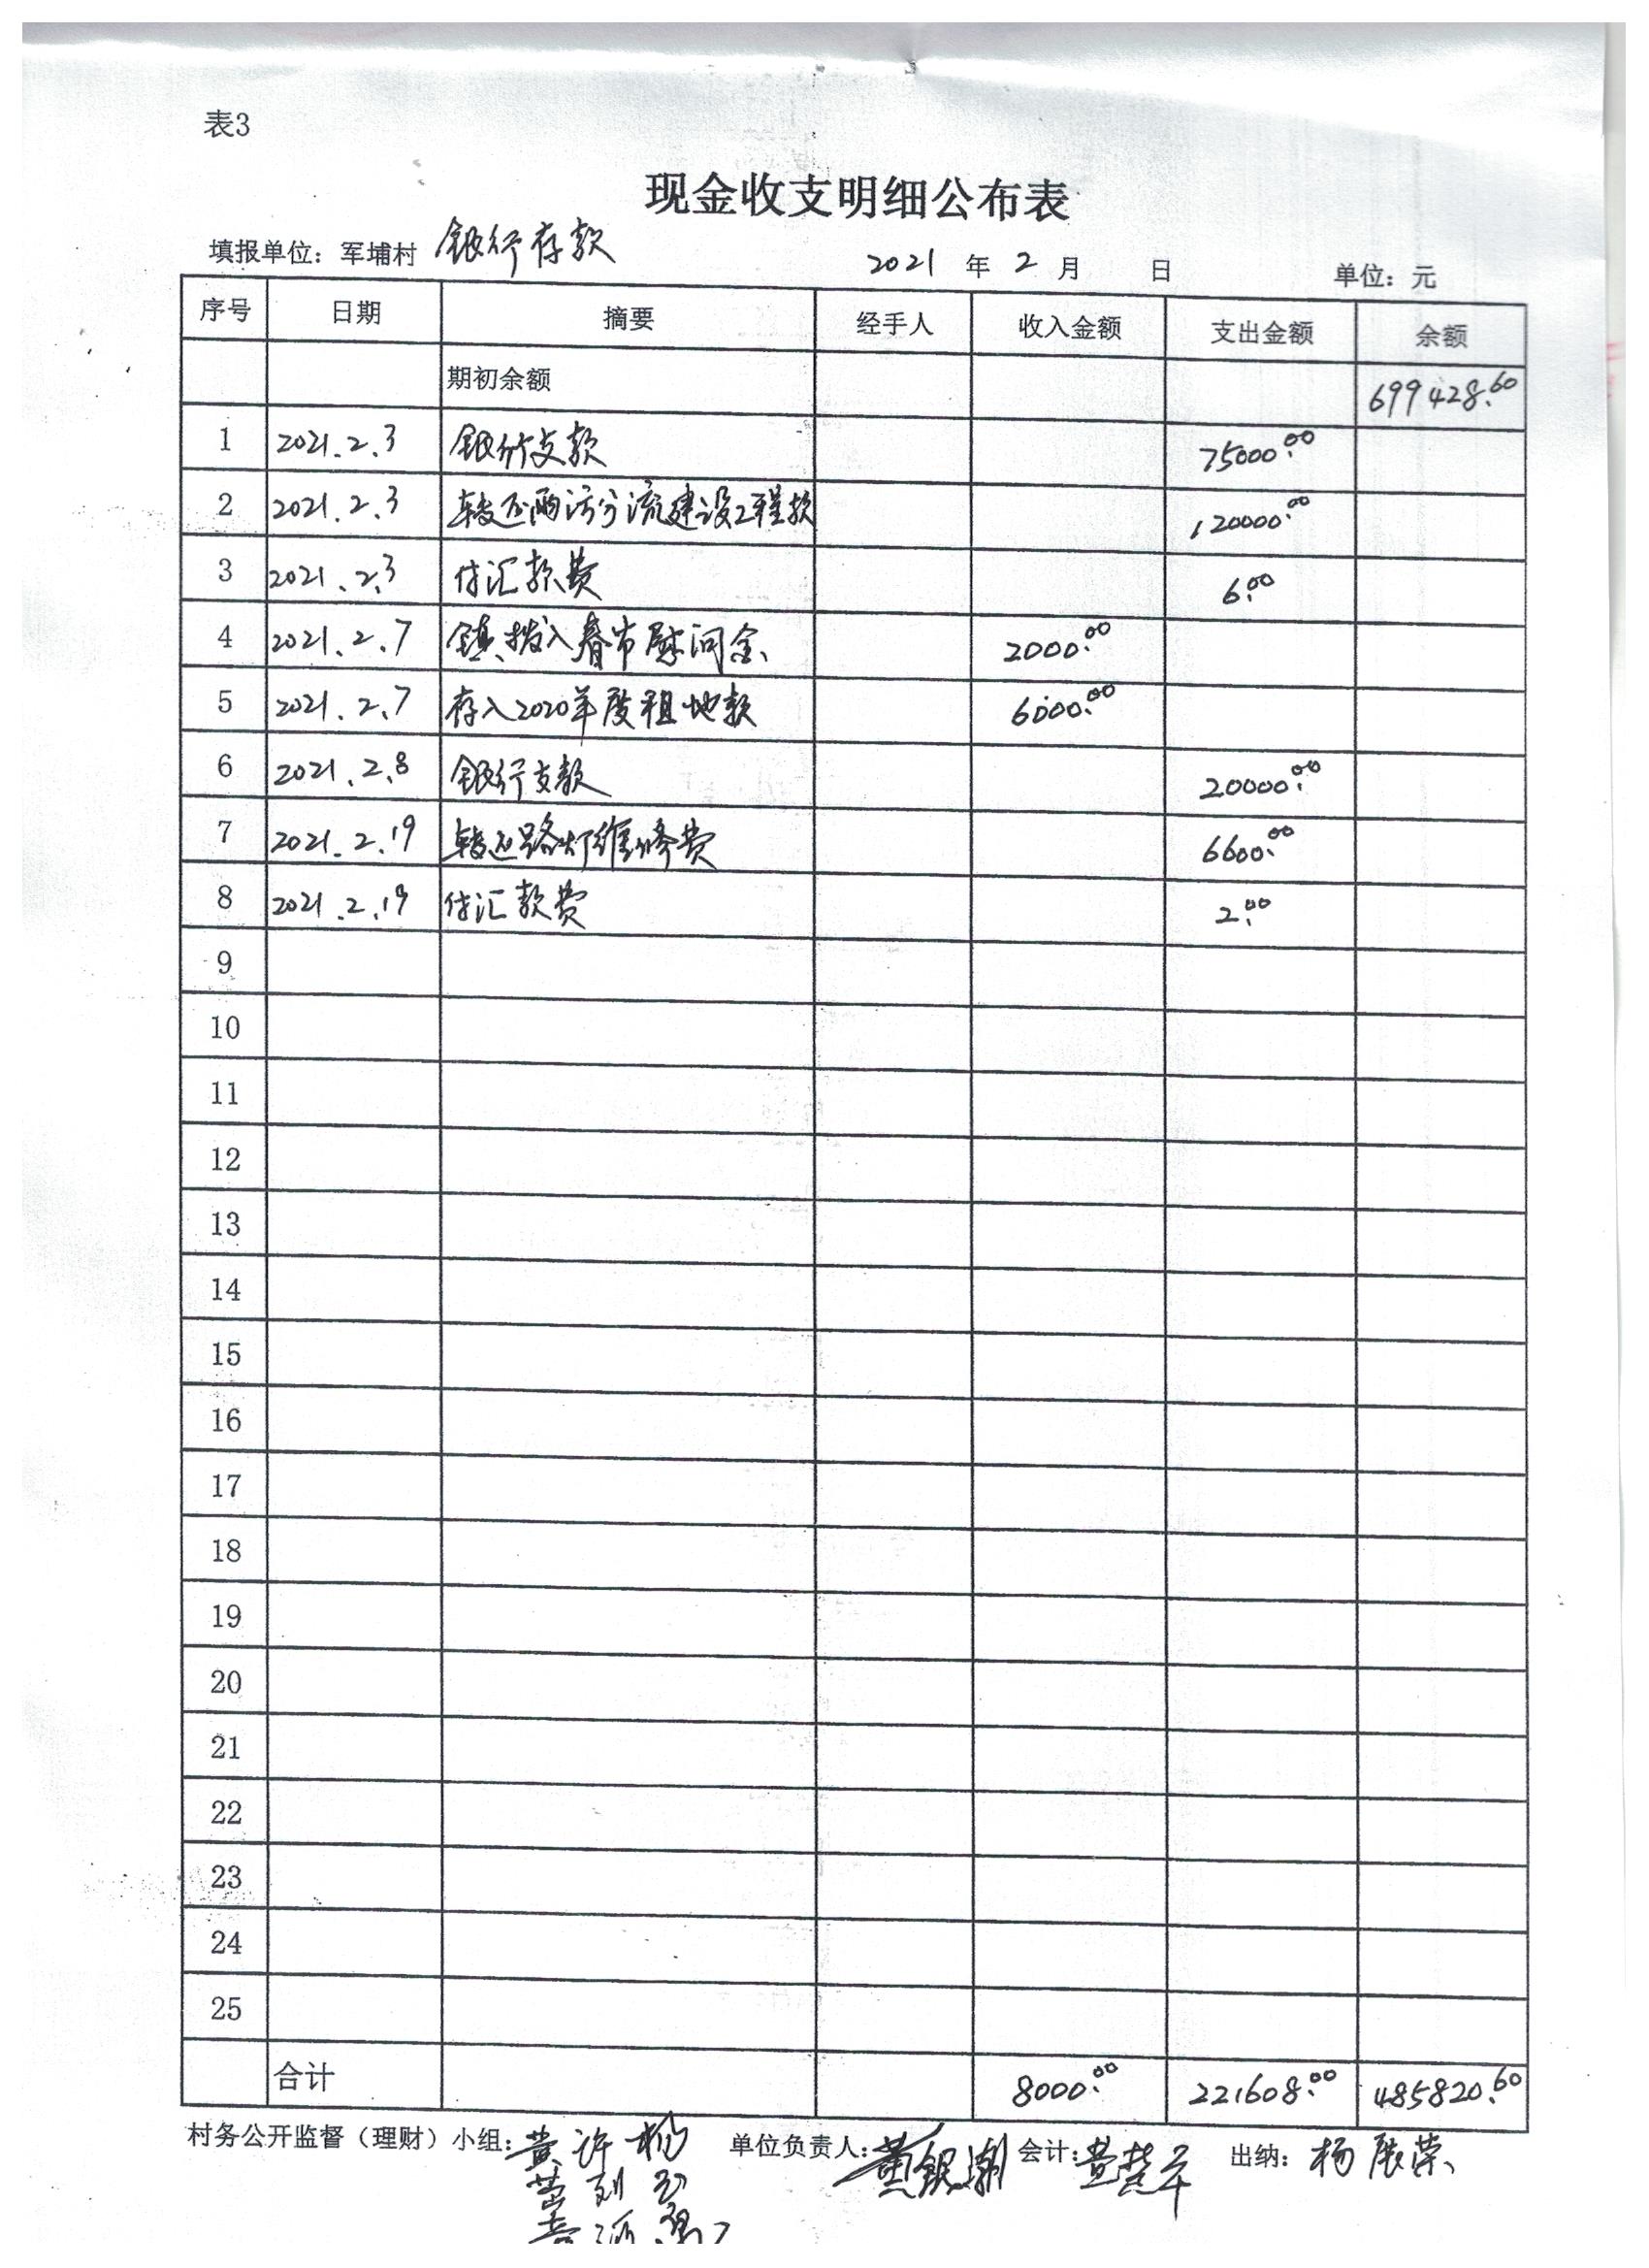 表3
现金收支明细公布表
填报单位：军埔村 银行存款 2021 年 2 月 日 单位：元
序号 日期 摘要 经手人 收入金额 支出金额 余额
期初余额 699428.60
1 2021.2.3 银行支款 75000.00
2 2021.2.3 转还雨污分流建设工程款 120000.00
3 2021.2.3 付汇款费 6.00
4 2021.2.7 镇拨入春节慰问金 2000.00
5 2021.2.7 存入2020年度租地款 6000.00
6 2021.2.8 银行支款 20000.00
7 2021.2.19 转还路灯维修费 6600.00
8 2021.2.19 付汇款费 2.00
9
10
11
12
13
14
15
16
17
18
19
20
21
22
23
24
25
合计 8000.00 221608.00 485820.60
村务公开监督（理财）小组：黄许 单位负责人：黄银潮 会计：黄楚平 出纳：杨展荣